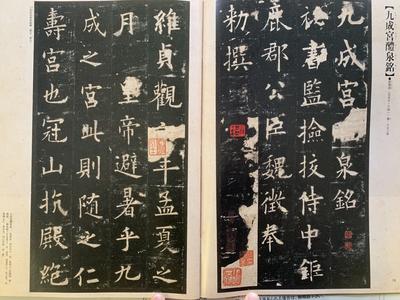 【九成宮醴泉銘】
九成宮 泉銘
祕書監撿挍侍中鉅
鹿郡公臣魏徵奉
勑撰
維貞觀六年孟夏之
月 皇帝避暑乎九
成之宮此則随之仁
壽宮也冠山抗殿絕